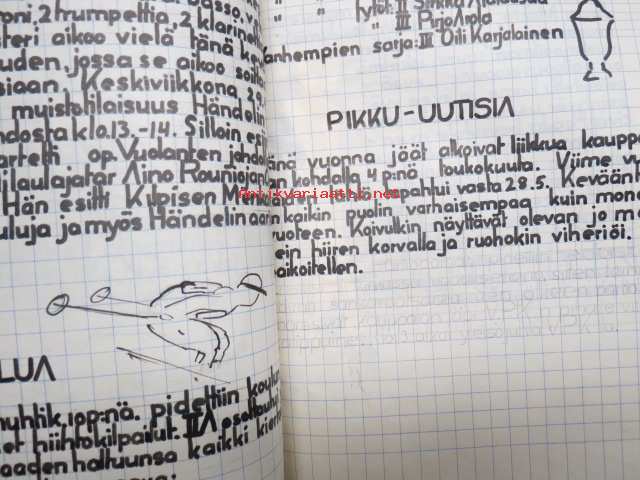 basso, va
roni, 2 trumpettia, 2 klarine
teri aikoo vielä tänä ke
uden, jossa se aikoo soit
siaan. Keskiviikkona, 29
muistotilaisuus Händelin
hdosta klo.13.-14. Silloin esi
artetti op. Vuolanten johdol
laulajatar Aino Rouniojan
Hän esitti Kilpisen M
uluja ja myös Händelin aari
LUA
huhtik. 1 pp:nä. pidettiin koulu
et hiihtokilpailut. IIA osallistui
aaden haltuunsa kaikki kier
" " tytöt: II Sirkka
" III Pirjo Arola
anhempien sarja: III Oili Karjalainen
PIKKU-UUTISIA
änä vuonna jäät alkoivat liikkua kauppa
an kohdalla 4 p:nä toukokuuta. Viime v
tapahtui vasta 28.5. Keväänt
n kaikin puolin varhaisempaa kuin mone
ruoteen. Koivutkin näyttävät olevan jo m
ein hiiren korvalla ja ruohokin viheriöi.
aikoitellen.
Antikvariaatti.net